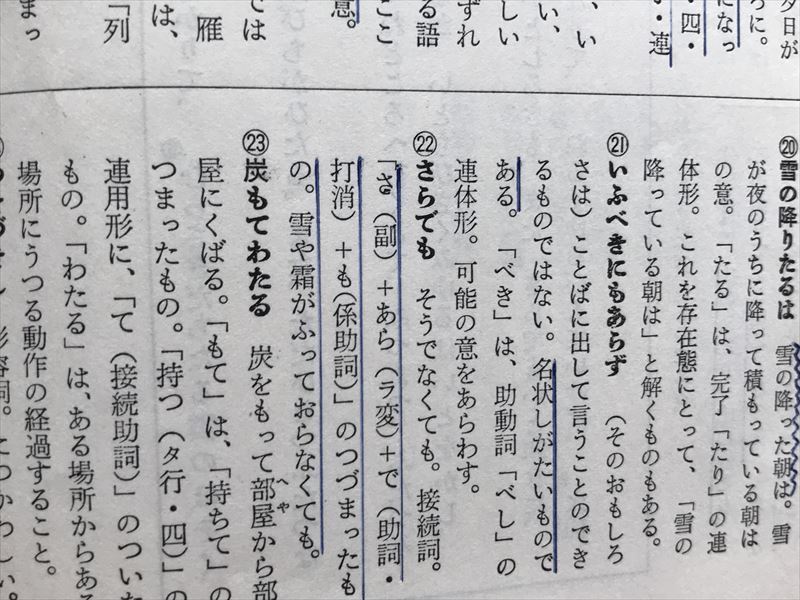 夕日が
ろに。
になっ
・四・
・連
、い
い、
しい
ずれ
る語
ここ
意。
ては
雁
は、
「列
まっ
⑳雪の降りたるは 雪の降った朝は。雪
が夜のうちに降って積もっている朝は
の意。「たる」は、完了「たり」の連
体形。これを存在態にとって、「雪の
降っている朝は」と解くものもある。
㉑いふべきにもあらず （そのおもしろ
さは）ことばに出して言うことのでき
るものではない。名状しがたいもので
ある。「べき」は、助動詞「べし」の
連体形。可能の意をあらわす。
㉒さらでも そうでなくても。接続詞。
「さ（副）＋あら（ラ変）＋で（助詞・
打消）＋も（係助詞）」のつづまったも
の。雪や霜がふっておらなくても。
㉓炭もてわたる 炭をもって部屋から部
へや
屋にくばる。「もて」は、「持ちて」の
つまったもの。「持つ（タ行・四）」の
連用形に、「て（接続助詞）」のついた
もの。「わたる」は、ある場所からあ
場所にうつる動作の経過すること。